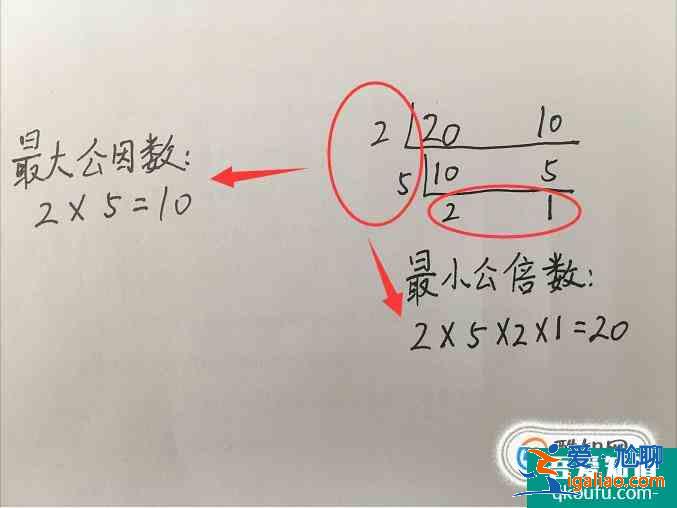 最大公因数:
2×5=10
2 20 10
5 10 5
2 1
最小公倍数:
2×5×2×1=20
爱尬聊
igaliao.com
qkoufu.com